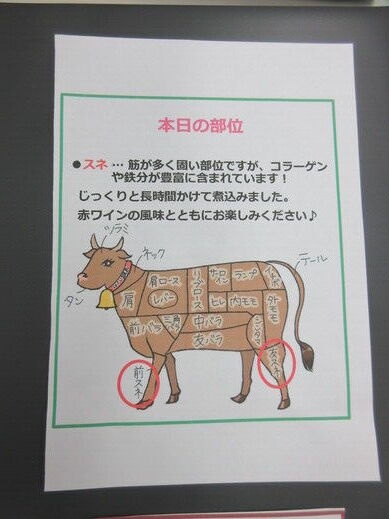 本日の部位
●スネ … 筋が多く固い部位ですが、コラーゲン
や鉄分が豊富に含まれています！
じっくりと長時間かけて煮込みました。
赤ワインの風味とともにお楽しみください♪
ツラミ
ネック
テール
タン
肩
肩ロース
レバー
リブロース
サーロイン
ランプ
イチボ
ヒレ
内モモ
外モモ
前バラ
三角バラ
中バラ
友バラ
シンタマ
前スネ
友スネ